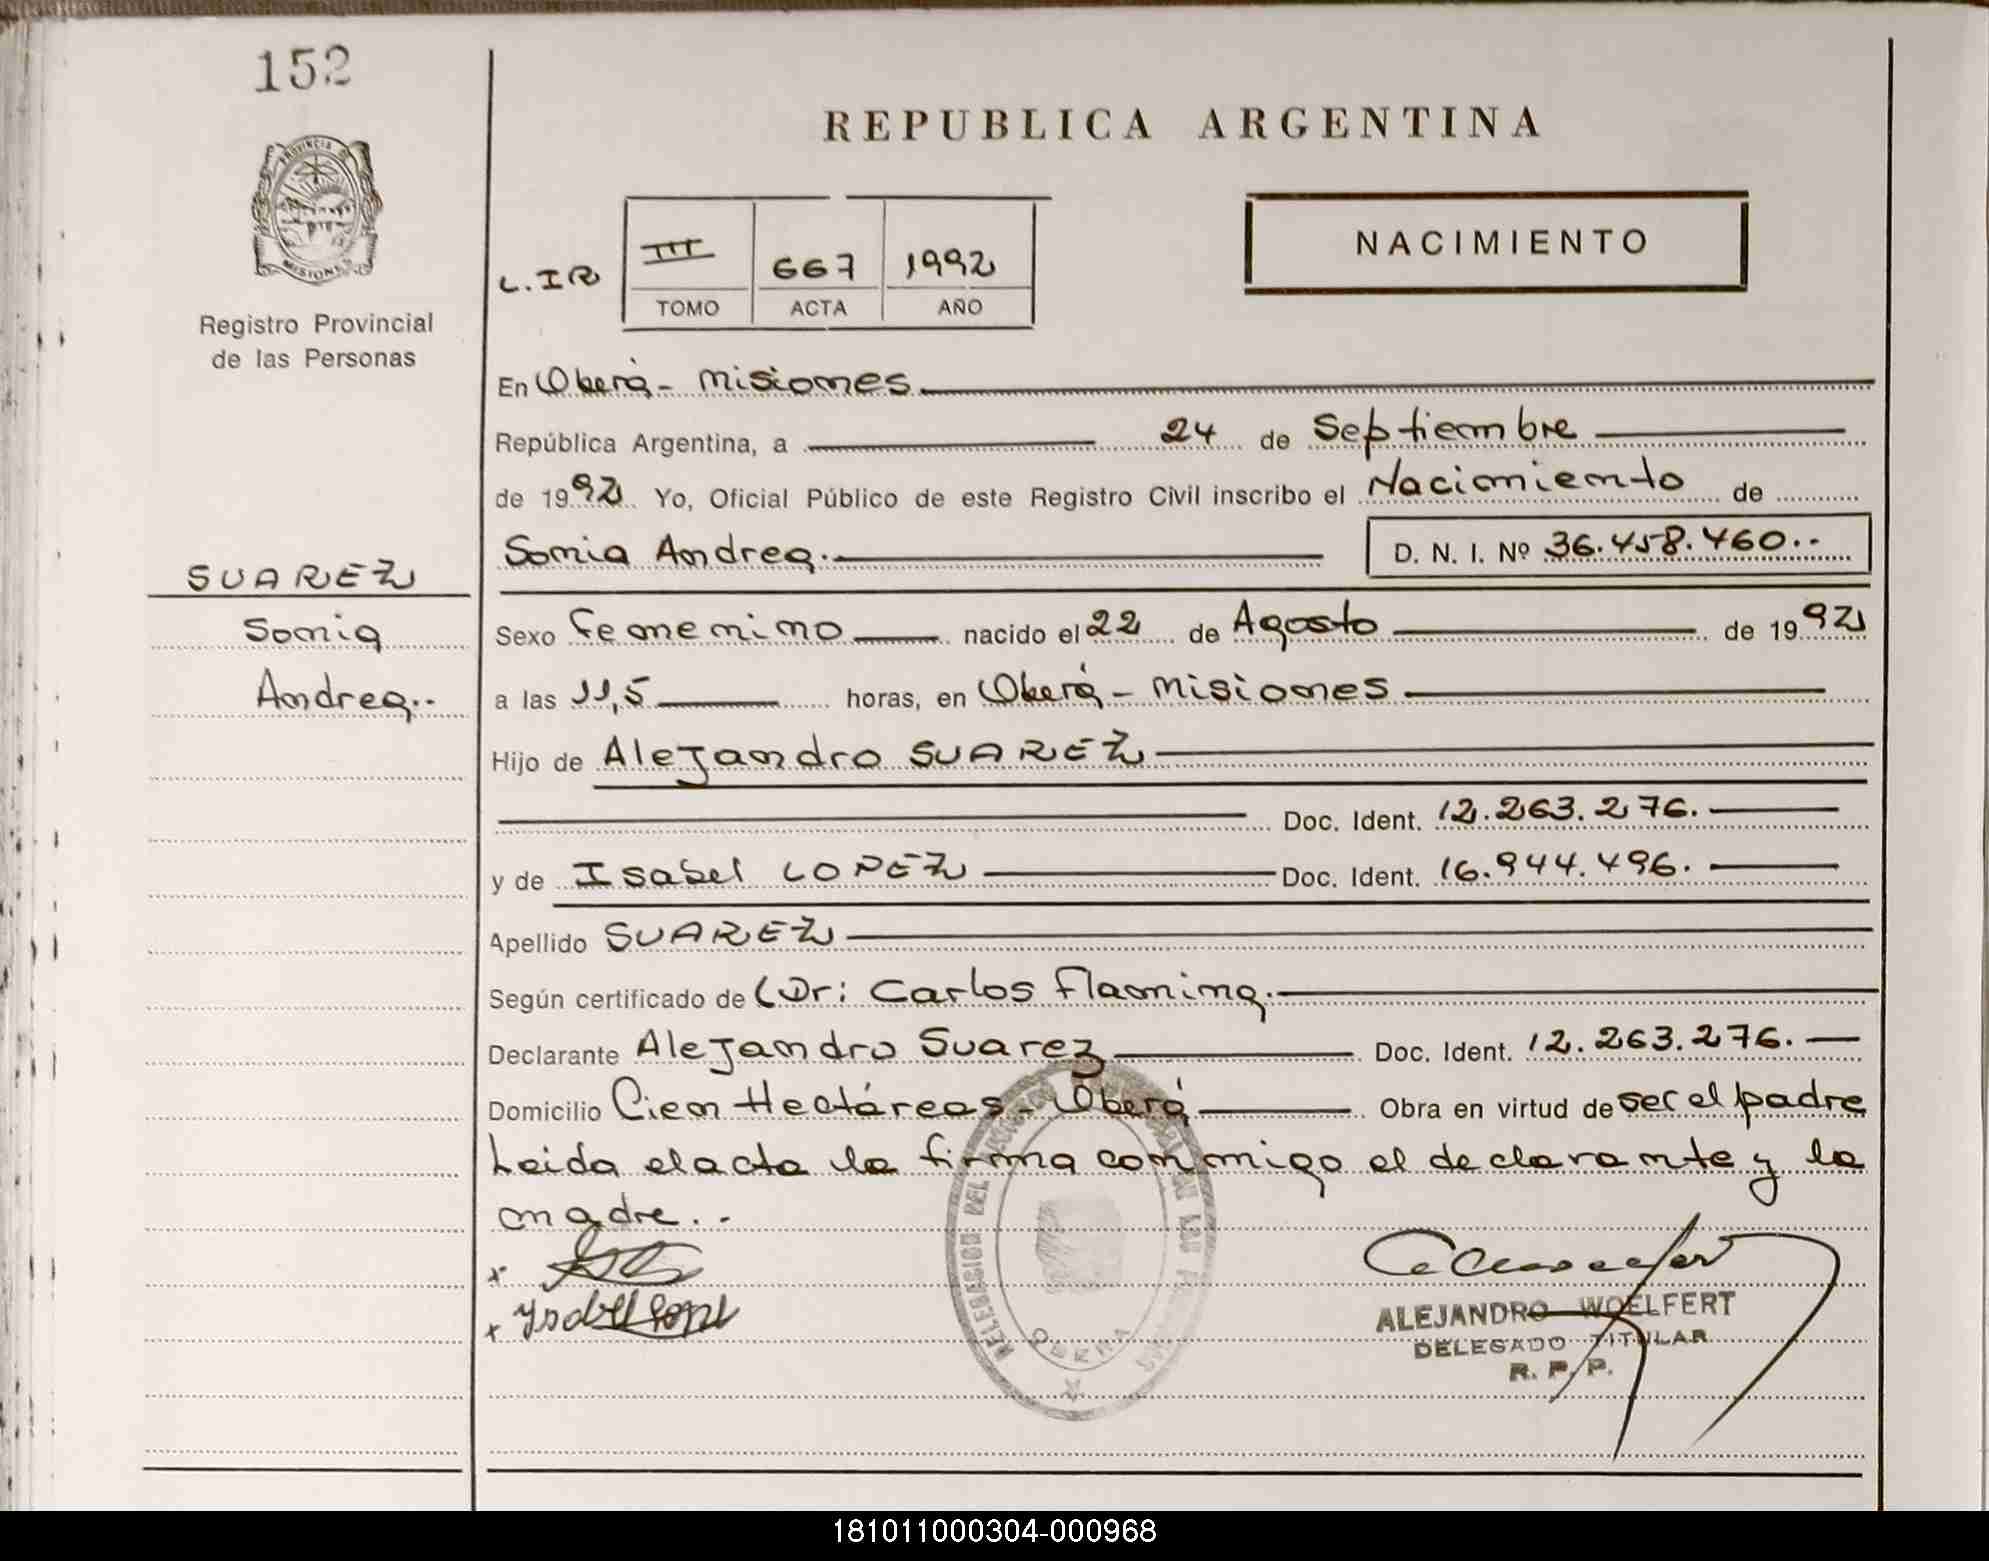 152
PROVINCIA DE
MISIONES
Registro Provincial
de las Personas
SUAREZ
Sonia
Andrea..
REPUBLICA ARGENTINA
L.IR
III 667 1992
TOMO ACTA AÑO
NACIMIENTO
En Oberá - Misiones
República Argentina, a 24 de Septiembre
de 1992. Yo, Oficial Público de este Registro Civil inscribo el Nacimiento de
Sonia Andrea.
D. N. I. Nº 36.458.460..
Sexo Femenino nacido el 22 de Agosto de 1992
a las 11,5 horas, en Oberá - Misiones
Hijo de Alejandro SUAREZ
Doc. Ident. 12.263.276.
y de Isabel LOPEZ Doc. Ident. 16.944.496.
Apellido SUAREZ
Según certificado de Dr: Carlos Flaming.
Declarante Alejandro Suarez Doc. Ident. 12.263.276.
Domicilio Cien Hectáreas - Oberá Obra en virtud de ser el padre
Leida el acta la firma conmigo el declarante y la
madre..
DELEGACION DEL
OBERA
ALEJANDRO WOELFERT
DELEGADO TITULAR
R. P. P.
181011000304-000968